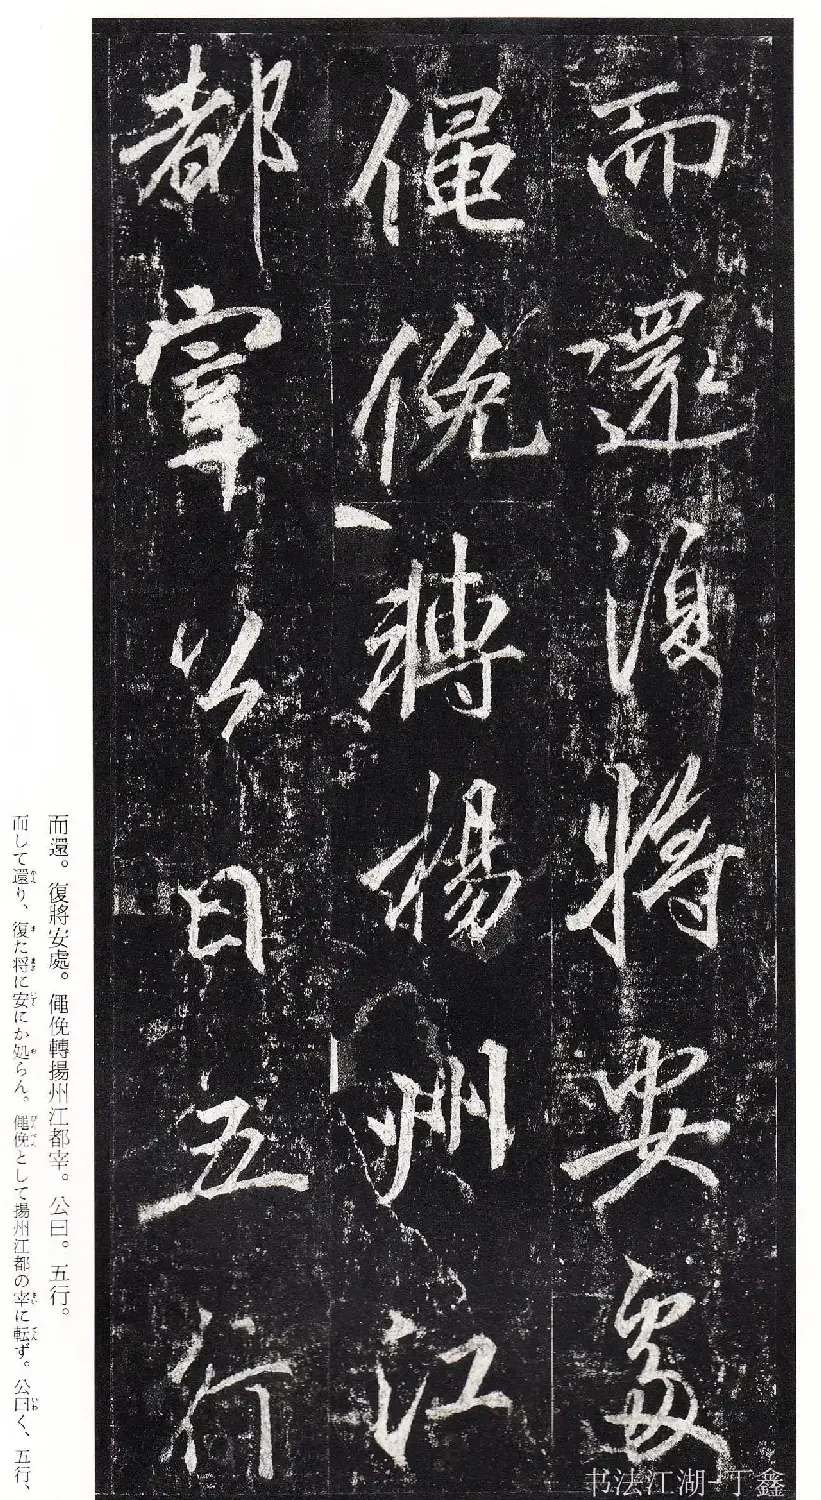 而還復將安處
僶俛轉楊州江
都宰公曰五行
而還。復將安處。僶俛轉揚州江都宰。公曰。五行。
而して還り、復た将に安にか処らん。僶俛として揚州江都の宰に転ず。公曰く、五行、
书法江湖-丁鑫